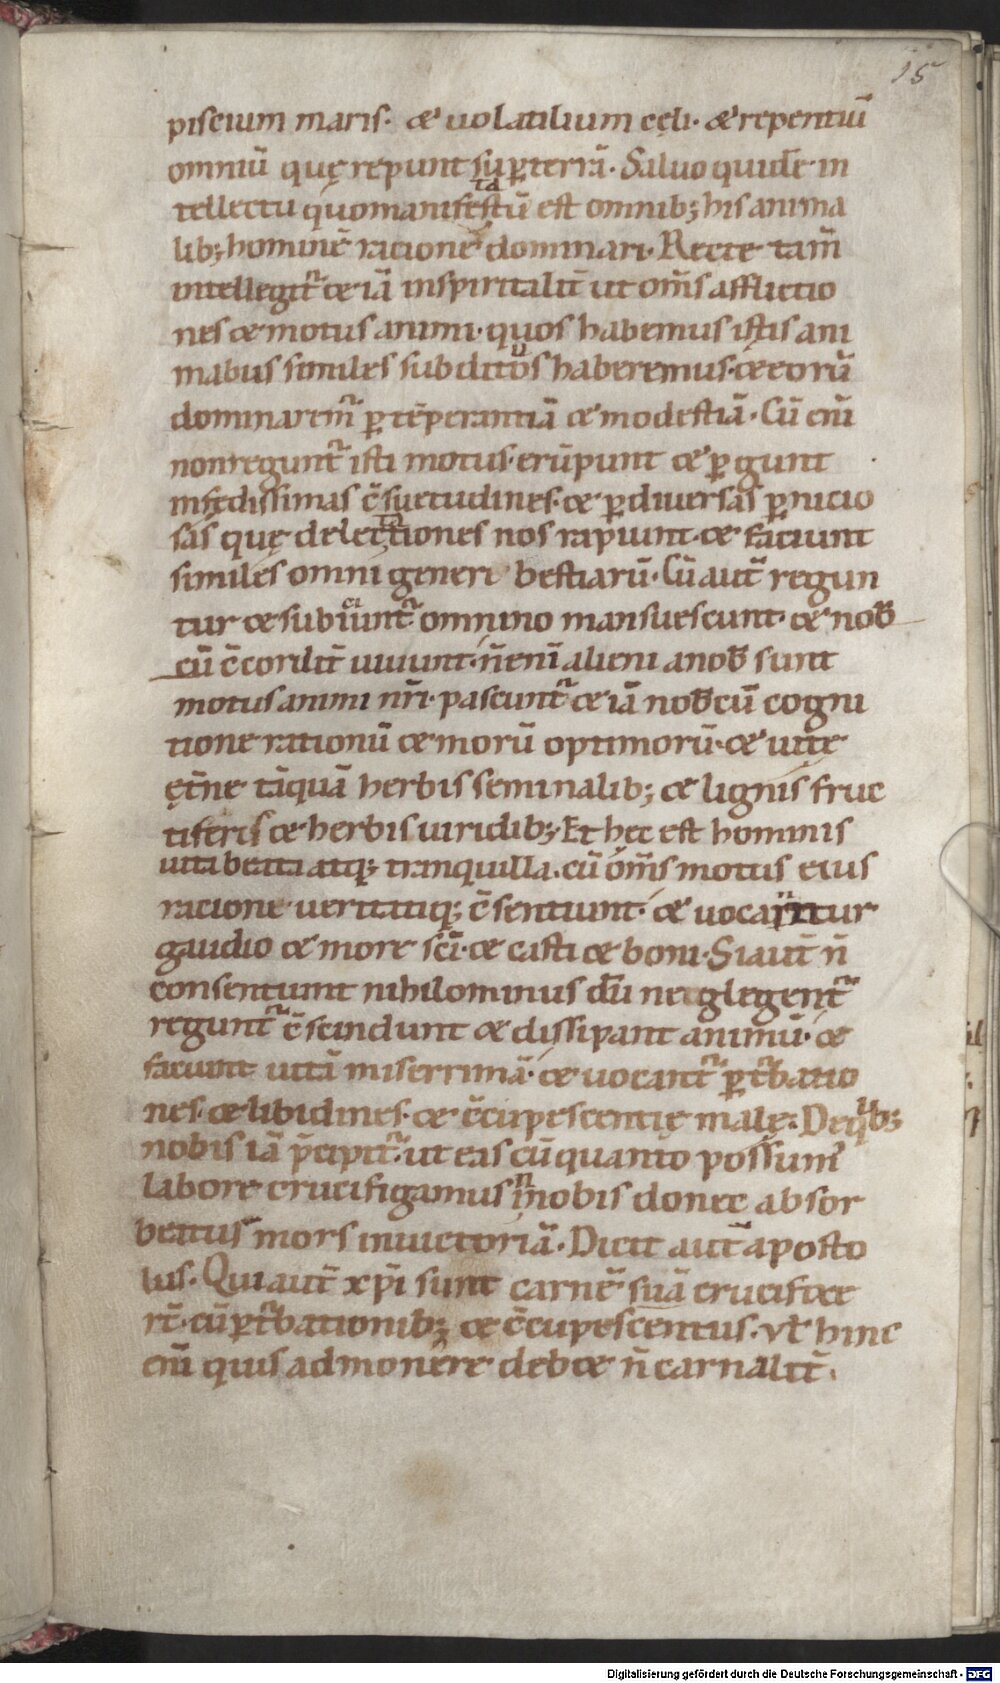 15
piscium maris· & uolatilium cęli· & repentiũ
omniũ quę repunt sup̱ terrã· Saluo quidẽ in
tellectu quo manifestũ est omnib; his anima
lib; hominẽ racione dominari· Recte tam̃
intellegit᷑ & iã inspiritalit̃ ut om̃s afflictio
nes & motus animi· quos habemus istis ani
mabus similes subditos haberemus· & eorũ
dominarem᷑ p̱ tẽperantiã & modestiã· Cũ eni̅
non regunt᷑ isti motus· erũpunt & p̱gunt
in fędissimas c̃suetudines· & p̱ diuersas p̱nicio
sas quę delectationes nos rapiunt· & faciunt
similes omni generi bestiarũ· Cũ aut̃ regun
tur & subiciunt᷑ omnino mansuescunt· & nob̅
cũ c̃cordit̃ uiuunt· ñ eni̅ alieni a nob̅ sunt
motus animi nr̃i· pascunt᷑ & iã nob̅cũ cogni
tione rationũ & morũ optimorũ· & uitę
ęt̃nę tãquã herbis seminalib; & lignis fruc
tiferis & herbis uiridib;· Et hęc est hominis
uita beata atq; tranquilla· cũ om̃s motus eius
racione ueritatiq; c̃sentiunt· & uocantur
gaudio & more sc̃i· & casti & boni· Si aut̃ ñ
consentiunt nihilominus dũ neglegent᷑
regunt᷑ c̃scindunt & dissipant animũ· &
faciunt uitã miserrimã· & uocant᷑ p̱t᷑batio
nes· & libidines· & c̃cupescentię malę· De q̇b;
nobis iã p̃cipit᷑· ut eas cũ quanto possum᷒
labore crucifigamus in nobis donec absor
beatus mors in uictoriã· Dicit aut̃ aposto
lus· Qui aut̃ xp̃i sunt carnẽ suã crucifixe
rt̃· cũ p̱t᷑bationib; & c̃cupescentiis· Vt̃ hinc
eni̅ quis admonere deb& ñ carnalit̃·
Digitalisierung gefördert durch die Deutsche Forschungsgemeinschaft - DFG